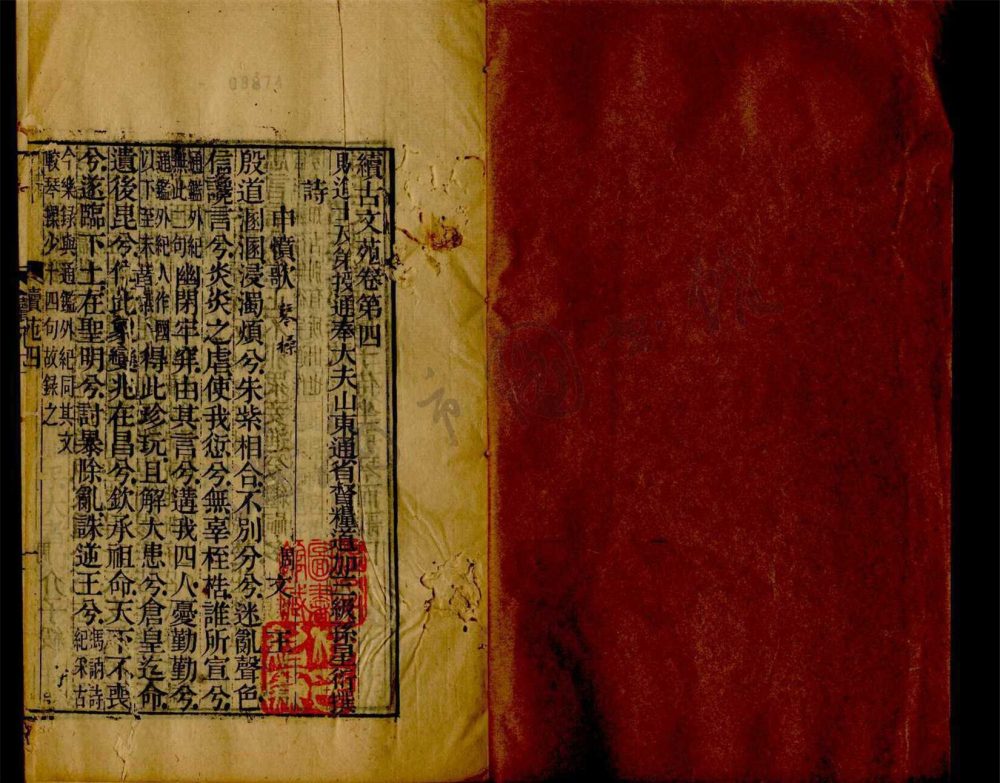 續古文苑卷第四
賜進士及第授通奉大夫山東通省督糧道加三級孫星衍撰
詩
申憤歌 琴操 周文王
殷道溷溷浸濁煩兮朱紫相合不別分兮迷亂聲色
信讒言兮炎炎之虐使我愆兮無辜桎梏誰所宣兮
通鑑外紀無此二句幽閉牢穽由其言兮遘我四人憂勤勤兮
通鑑外紀人作國以下至末
得此珍玩且解大患兮倉皇迄命
遺後昆兮作此象變兆在昌兮欽承祖命天下不喪
兮遂臨下土在聖明兮討暴除亂誅逆王兮馮訥詩紀采古
今樂錄與通鑑外紀同其文
琴操少十四句故錄之
續苑四
03874
市